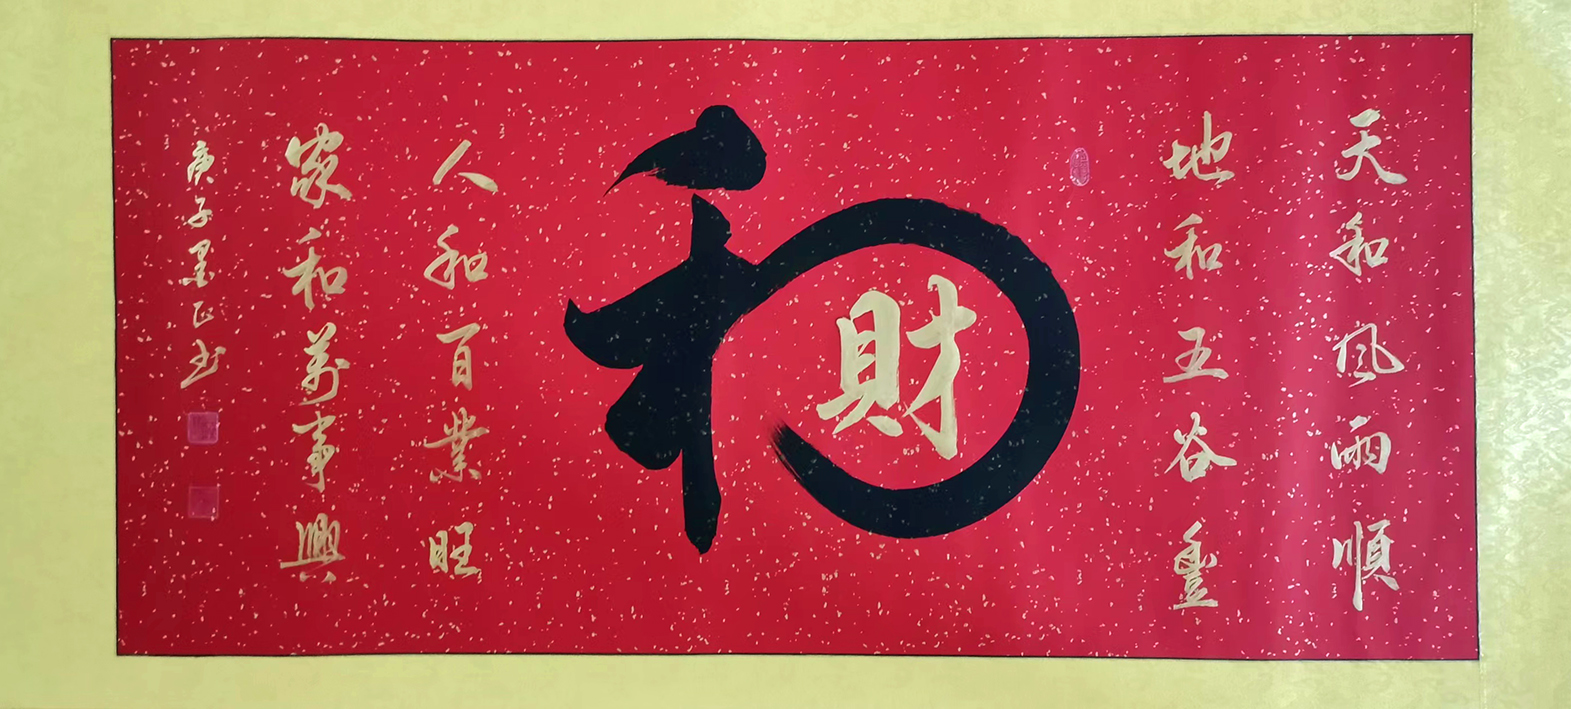 天和風雨順
地和五谷豐
和
財
人和百業旺
家和萬事興
庚子墨正书